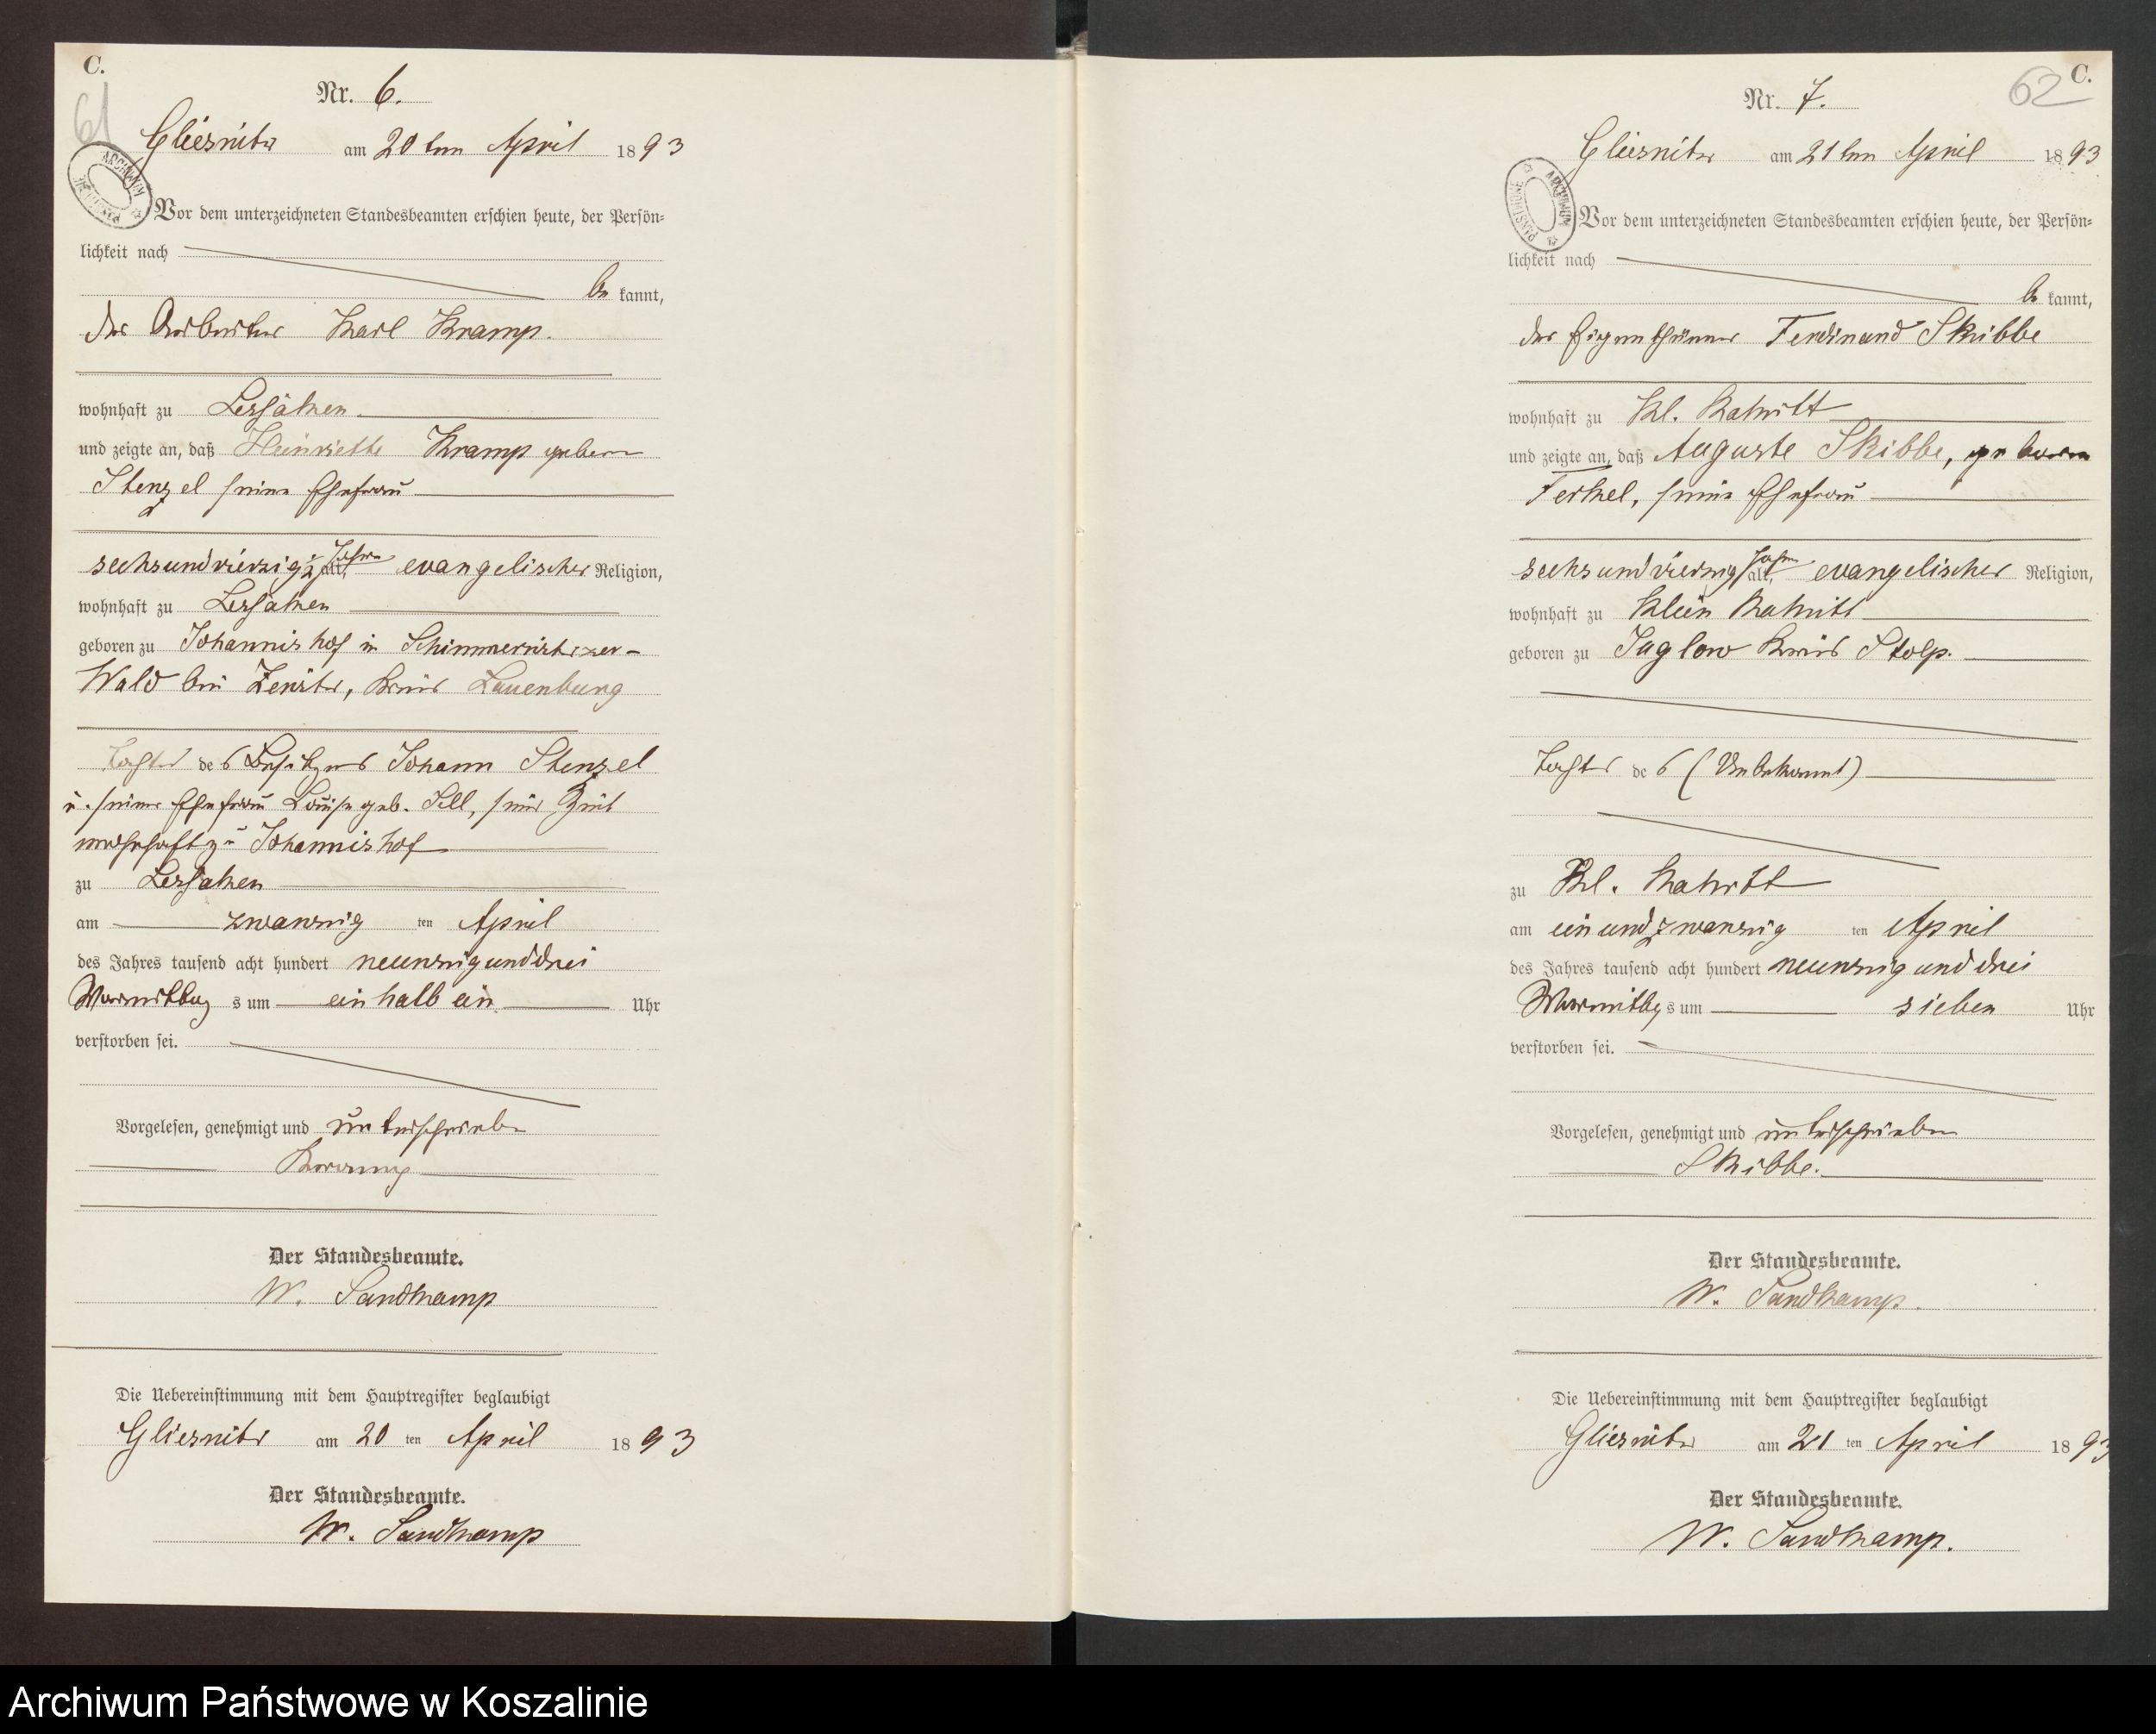 C.
61
Nr. 6.
Gliesnitz am 20ten April 1893
ARCHIWUM PAŃSTWOWE
Vor dem unterzeichneten Standesbeamten erschien heute, der Persön=
lichkeit nach
be kannt,
der Arbeiter Karl Kramp.
wohnhaft zu Lessaken
und zeigte an, daß Henriette Kramp geborne
Stenzel seine Ehefrau
sechsundvierzig ½ Jahre alt, evangelischer Religion,
wohnhaft zu Lessaken
geboren zu Johannishof in
Wald bei Zenitz, Kreis Lauenburg
Tochter des Besitzers Johann Stenzel
u. seiner Ehefrau Louise geb. Sell,
wohnhaft zu Johannishof
zu Lessaken
am zwanzig ten April
des Jahres tausend acht hundert neunzig und drei
Vormittags um ein halb ein Uhr
verstorben sei.
Vorgelesen, genehmigt und unterschrieben
Kramp
Der Standesbeamte.
W. Sandkamp
Die Uebereinstimmung mit dem Hauptregister beglaubigt
Gliesnitz am 20 ten April 1893
Der Standesbeamte.
W. Sandkamp
C.
62
Nr. 7.
Gliesnitz am 21ten April 1893
ARCHIWUM PAŃSTWOWE
Vor dem unterzeichneten Standesbeamten erschien heute, der Persön=
lichkeit nach
be kannt,
der Eigenthümer Ferdinand Skibbe
wohnhaft zu Kl. Rakitt
und zeigte an, daß Auguste Skibbe, geborne
Ferkel, seine Ehefrau
sechsundvierzig Jahre alt, evangelischer Religion,
wohnhaft zu Klein Rakitt
geboren zu Kreis Stolp.
Tochter des (Unbekannt)
zu Kl. Rakitt
am ein und zwanzig ten April
des Jahres tausend acht hundert neunzig und drei
Vormittags um sieben Uhr
verstorben sei.
Vorgelesen, genehmigt und unterschrieben
Skibbe.
Der Standesbeamte.
W. Sandkamp.
Die Uebereinstimmung mit dem Hauptregister beglaubigt
Gliesnitz am 21 ten April 1893
Der Standesbeamte.
W. Sandkamp.
Archiwum Państwowe w Koszalinie